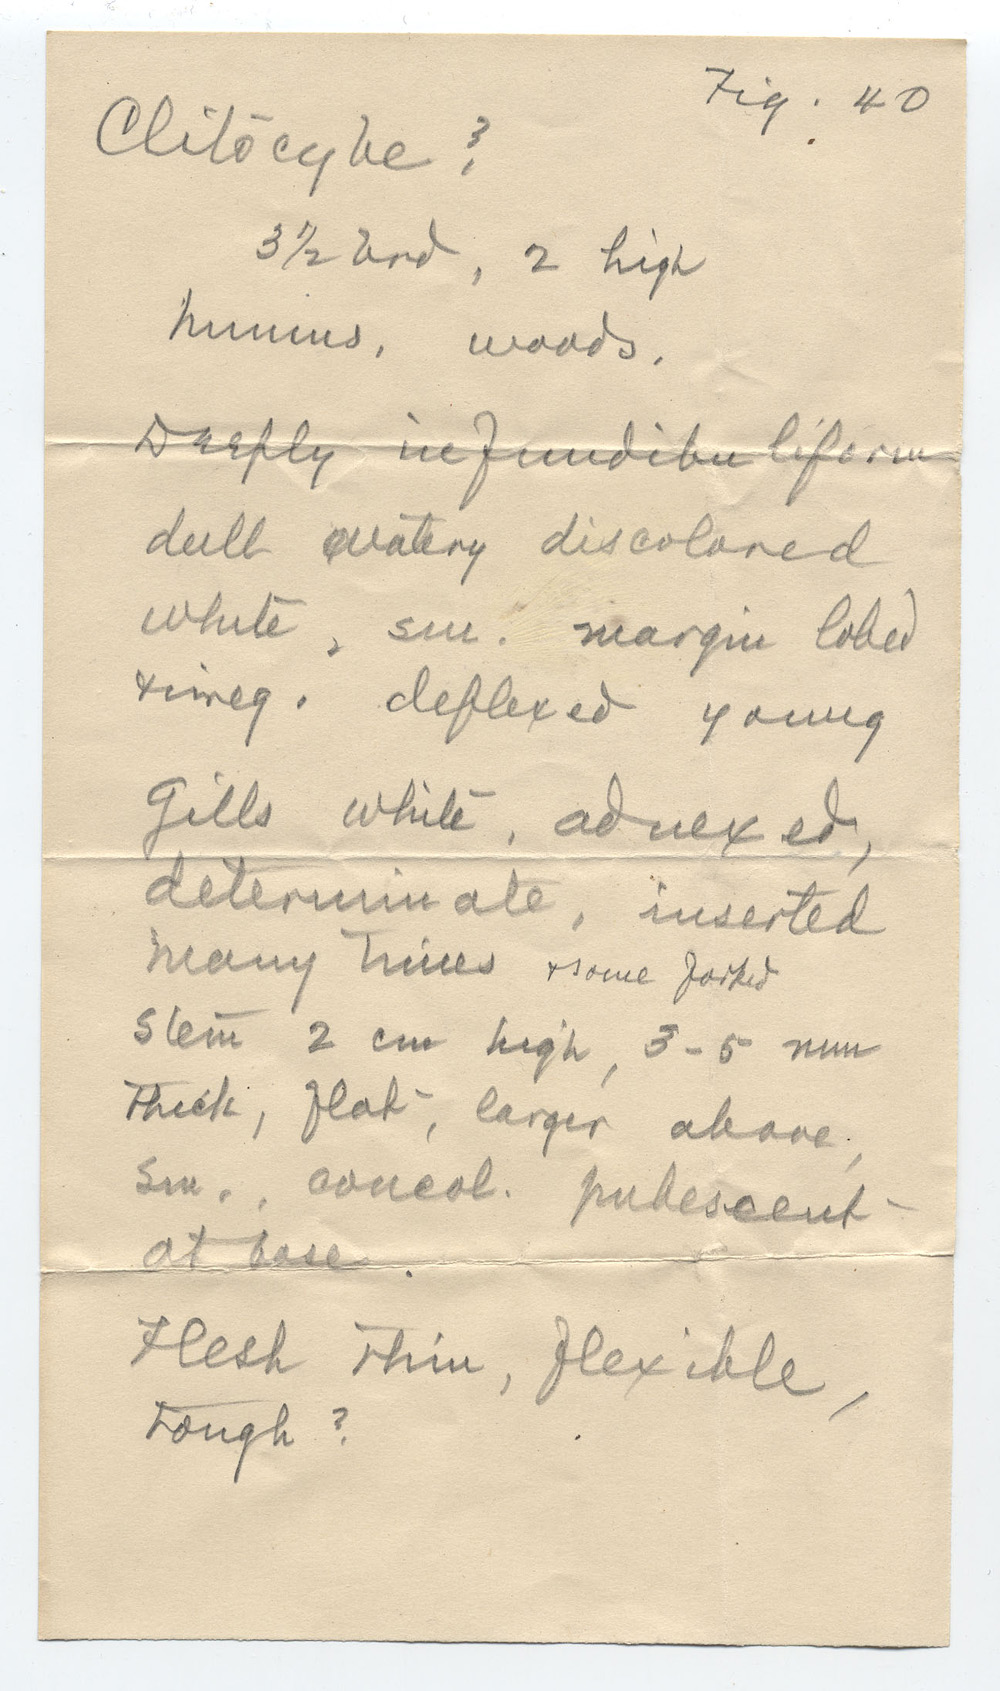 Fig. 40
Clitocybe ?
3 1/2 brd, 2 high
humus, woods.
Deeply infundibuliform
dull watery discolored
white, sm. margin lobed
+ irreg. deflexed young
Gills white, adnexed,
determinate, inserted
many times + some forked
Stem 2 cm high, 3-5 mm
thick, flat, larger above,
sm., concol. pubescent
at base.
Flesh thin, flexible,
tough ?